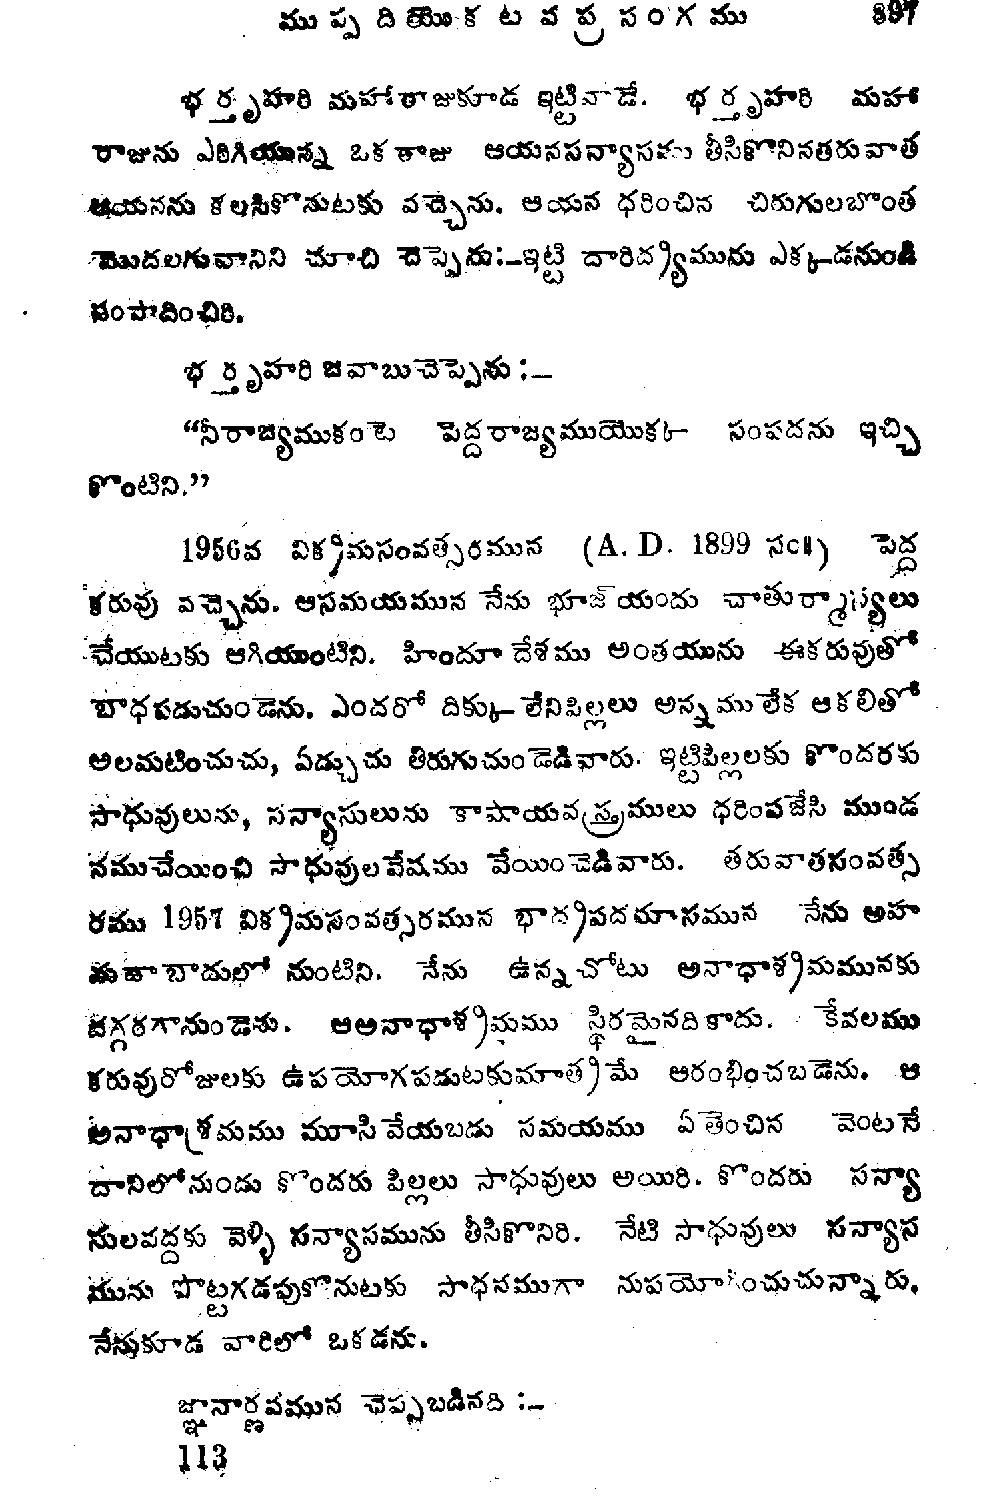 ముప్పదియొకటవప్రసంగము 897
భర్తృహరి మహారాజుకూడ ఇట్టివాడే. భర్తృహరి మహా
రాజును ఎరిగియున్న ఒక రాజు ఆయనసన్యాసము తీసికొనినతరువాత
ఆయనను కలసికొనుటకు వచ్చెను. ఆయన ధరించిన చిరుగులబొంత
మొదలగువానిని చూచి చెప్పెను:–ఇట్టి దారిద్ర్యమును ఎక్కడనుండి
సంపాదించిరి.
భర్తృహరి జవాబుచెప్పెను :–
“నీరాజ్యముకంటె పెద్దరాజ్యముయొక్క సంపదను ఇచ్చి
కొంటిని.”
1956వ విక్రమసంవత్సరమున (A. D. 1899 సం॥) పెద్ద
కరువు వచ్చెను. ఆసమయమున నేను భూజ్ యందు చాతుర్మాస్యలు
చేయుటకు ఆగియుంటిని. హిందూ దేశము అంతయును ఈకరువుతో
బాధపడుచుండెను. ఎందరో దిక్కులేనిపిల్లలు అన్నములేక ఆకలితో
అలమటించుచు, ఏడ్చుచు తిరుగుచుండెడివారు. ఇట్టిపిల్లలకు కొందరకు
సాధువులును, సన్యాసులును కాషాయవస్త్రములు ధరింపజేసి ముండ
నముచేయించి సాధువులవేషము వేయించెడివారు. తరువాతసంవత్స
రము 1957 విక్రమసంవత్సరమున భాద్రపదమాసమున నేను అహ
మదాబాదులో నుంటిని. నేను ఉన్నచోటు అనాధాశ్రమమునకు
దగ్గరగానుండెను. ఆఅనాధాశ్రమము స్థిరమైనదికాదు. కేవలము
కరువురోజులకు ఉపయోగపడుటకుమాత్రమే ఆరంభించబడెను. ఆ
అనాధాశ్రమము మూసివేయబడు సమయము ఏతెంచిన వెంటనే
దానిలోనుండు కొందరు పిల్లలు సాధువులు అయిరి. కొందరు సన్యా
సులవద్దకు వెళ్ళి సన్యాసమును తీసికొనిరి. నేటి సాధువులు సన్యాస
మును పొట్టగడపుకొనుటకు సాధనముగా నుపయోగించుచున్నారు,
నేనుకూడ వారిలో ఒకడను.
జ్ఞానార్ణవమున చెప్పబడినది :–
113